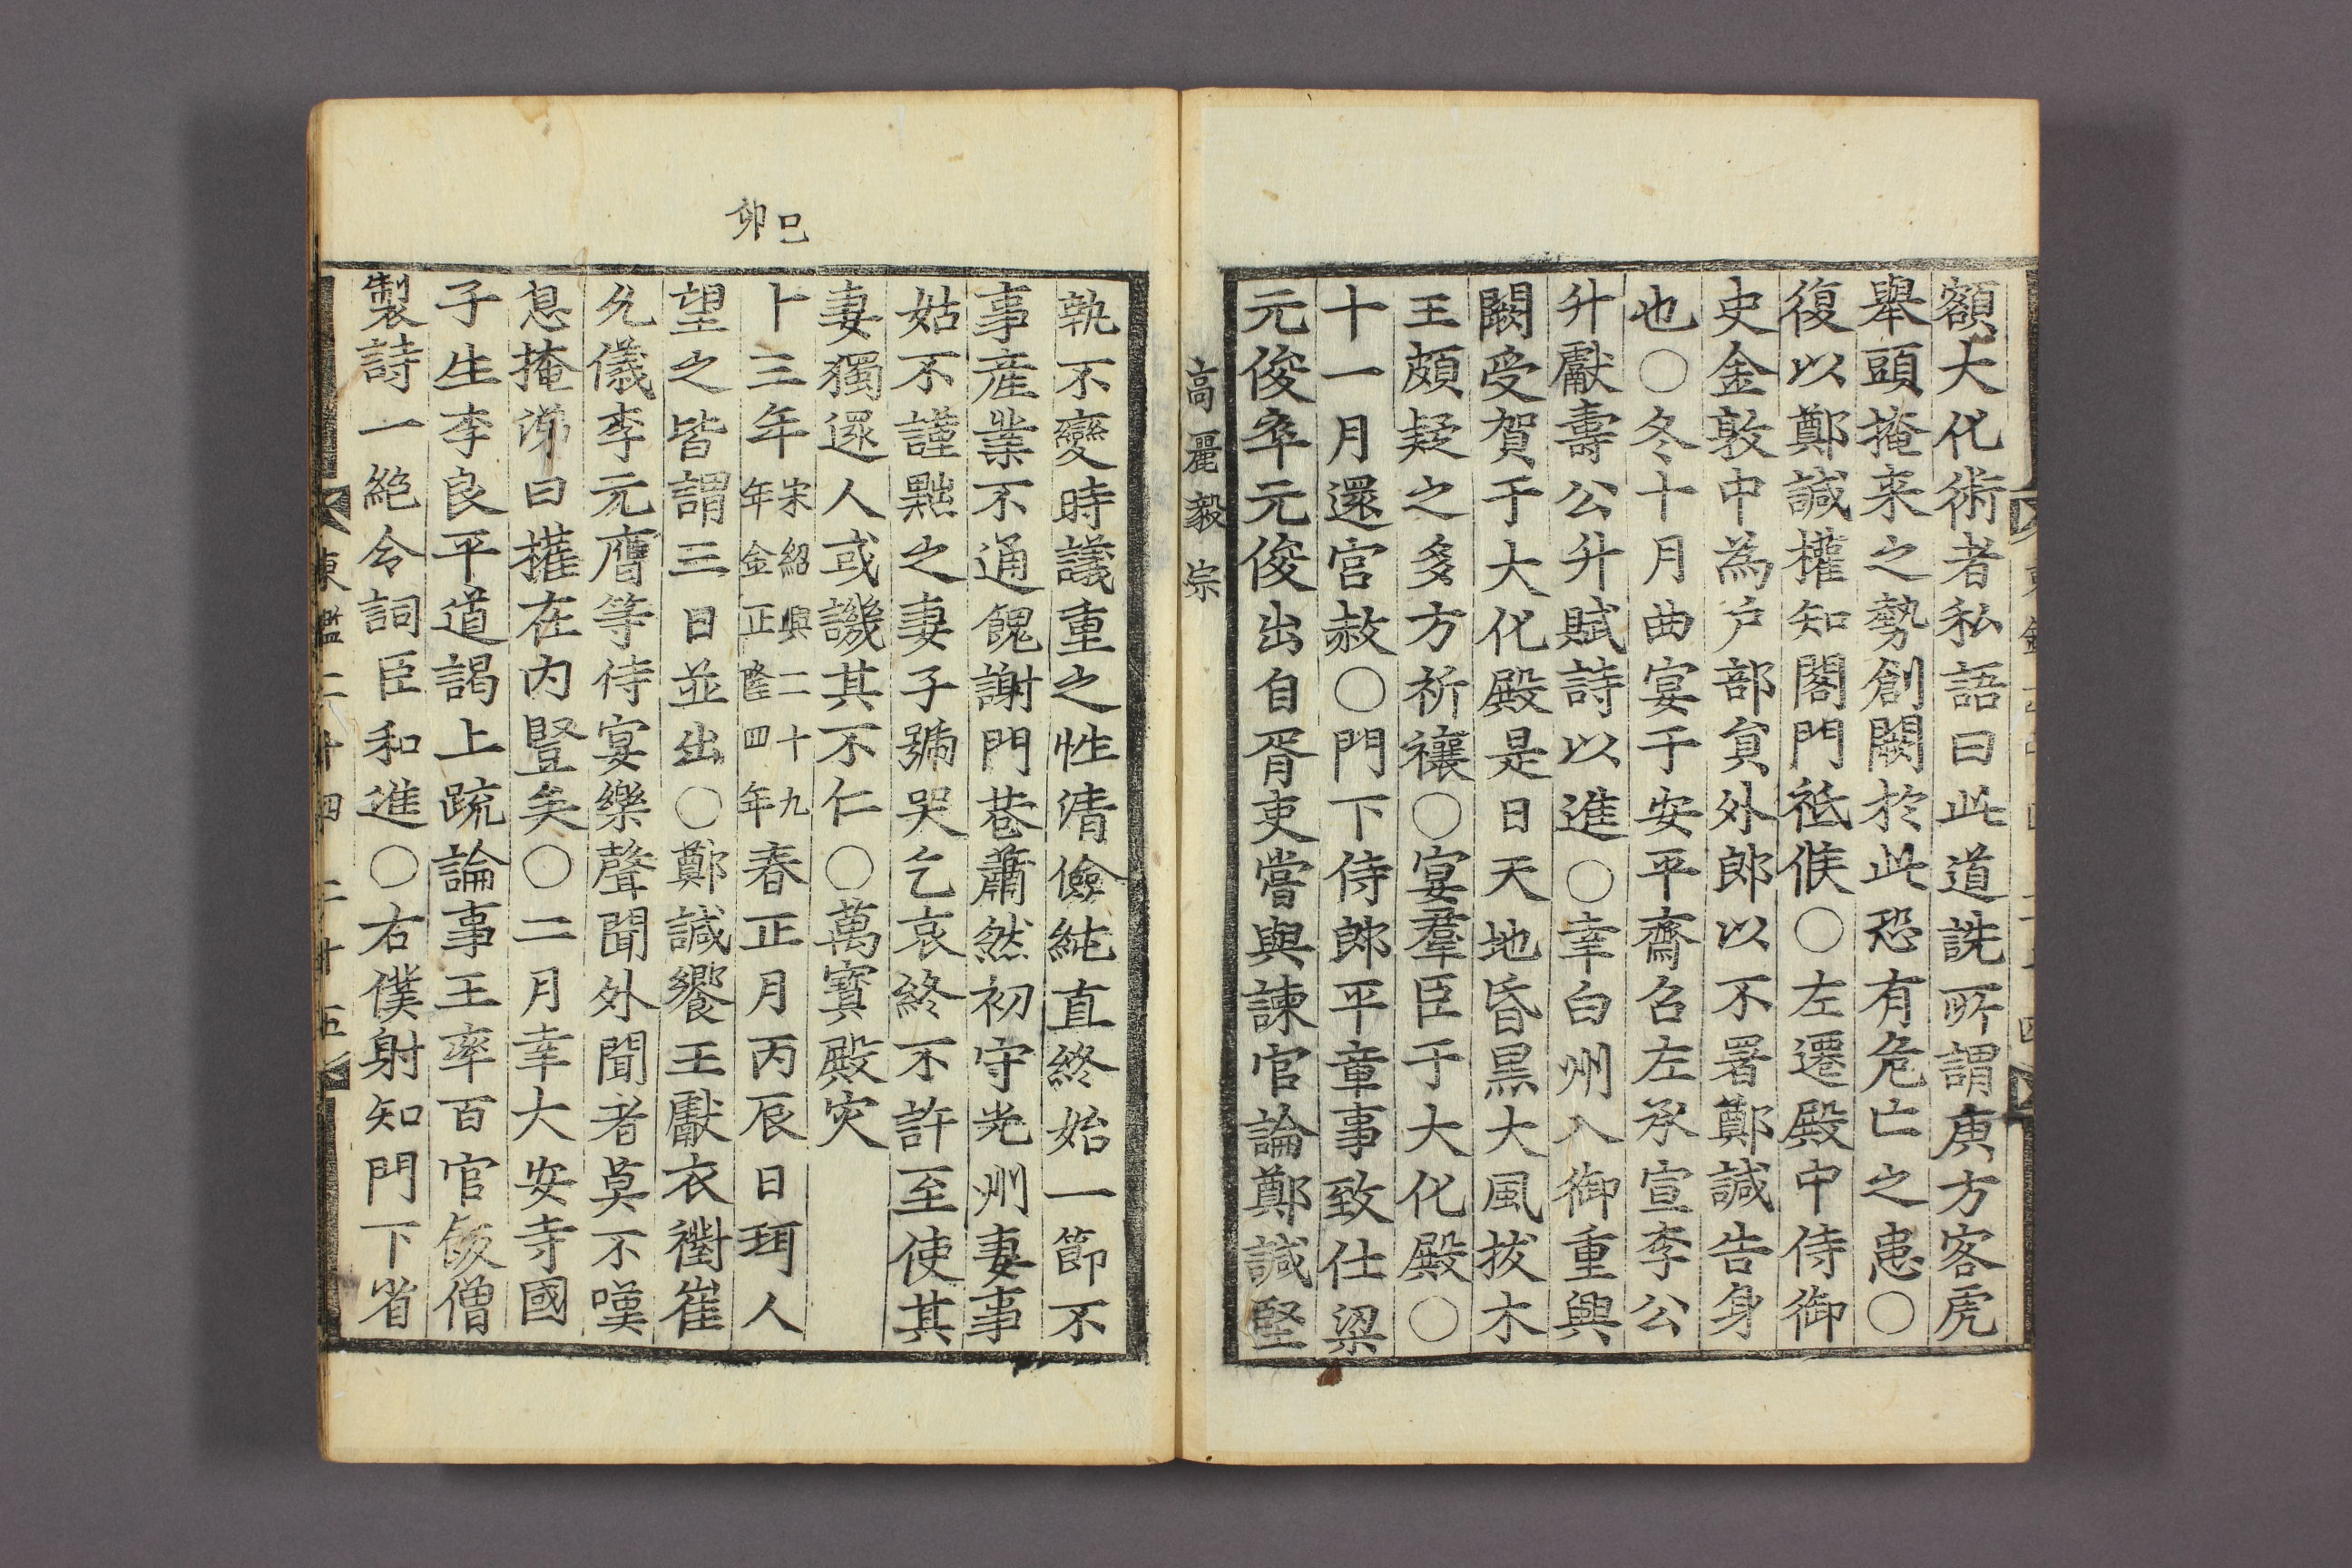 額大化術者私語曰此道詵所謂庚方客虎
舉頭掩来之勢創闕於此恐有危亡之患○
復以鄭諴權知閣門祗候○左遷殿中侍御
史金敦中為户部貟外郎以不署鄭諴告身
也○冬十月曲宴于安平齋召左承宣李公
升獻壽公升賦詩以進○幸白州入御重興
闕受賀于大化殿是日天地昏黒大風拔木
王頗疑之多方祈禳○宴羣臣于大化殿○
十一月還宮赦○門下侍郎平章事致仕梁
元俊卒元俊出自胥吏嘗與諫官論鄭諴堅
高麗毅宗
執不變時議重之性清儉純直終始一節不
事産業不通餽謝門巷蕭然初守光州妻事
姑不謹黜之妻子號哭乞哀終不許至使其
妻獨還人或譏其不仁○萬寶殿灾
己卯
十三年宋紹興二十九年金正隆四年春正月丙辰日珥人
望之皆謂三日並出○鄭諴饗王獻衣襨崔
允儀李元膺等侍宴樂聲聞外聞者莫不嘆
息掩涕曰權在内豎矣○二月幸大安寺國
子生李良平道謁上疏論事王率百官飯僧
製詩一絶令詞臣和進○右僕射知門下省
東鑑二十四 二十五